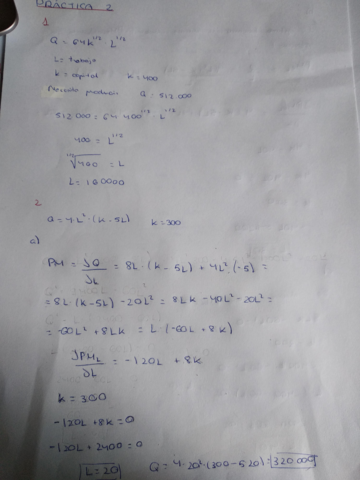 PRÁCTICA 2
1
Q = 64K^1/2 L^1/2
L = trabajo
K = capital K = 400
Necesito producir Q = 512 000
512 000 = 64 · 400^1/2 · L^1/2
400 = L^1/2
^1/2√400 = L
L = 160000
2.
Q = 4·L² · (K - 5L) K = 300
a)
PM = ∂Q/∂L = 8L · (K - 5L) + 4L² · (-5) =
= 8L · (K - 5L) - 20L² = 8LK - 40L² - 20L² =
= -60L² + 8LK = L · (-60L + 8K)
∂PML/∂L = -120L + 8K
K = 300
-120L + 8K = 0
-120L + 2400 = 0
L = 20 Q = 4·20²·(300 - 5·20) = 320 000